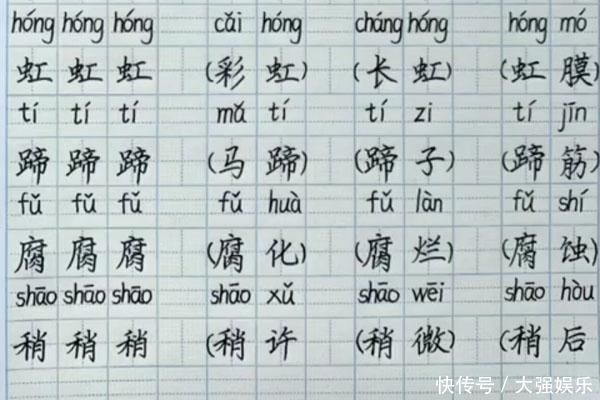 hóng hóng hóng cǎi hóng cháng hóng hóng mó
虹 虹 虹 (彩 虹) (长 虹) (虹 膜
tí tí tí mǎ tí tí zi tí jīn
蹄 蹄 蹄 (马 蹄) (蹄 子) (蹄 筋)
fǔ fǔ fǔ fǔ huà fǔ làn fǔ shí
腐 腐 腐 (腐 化) (腐 烂) (腐 蚀)
shāo shāo shāo shāo xǔ shāo wēi shāo hòu
稍 稍 稍 (稍 许 (稍 微) (稍 后
快传号 / 大强娱乐